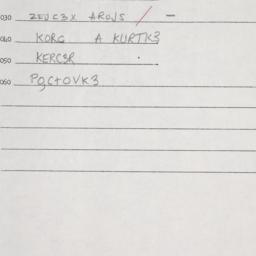 030 ZEUC3X AROJS / —
040 KORG A KURTK3
050 KERC3R .
060 POCTOVK3